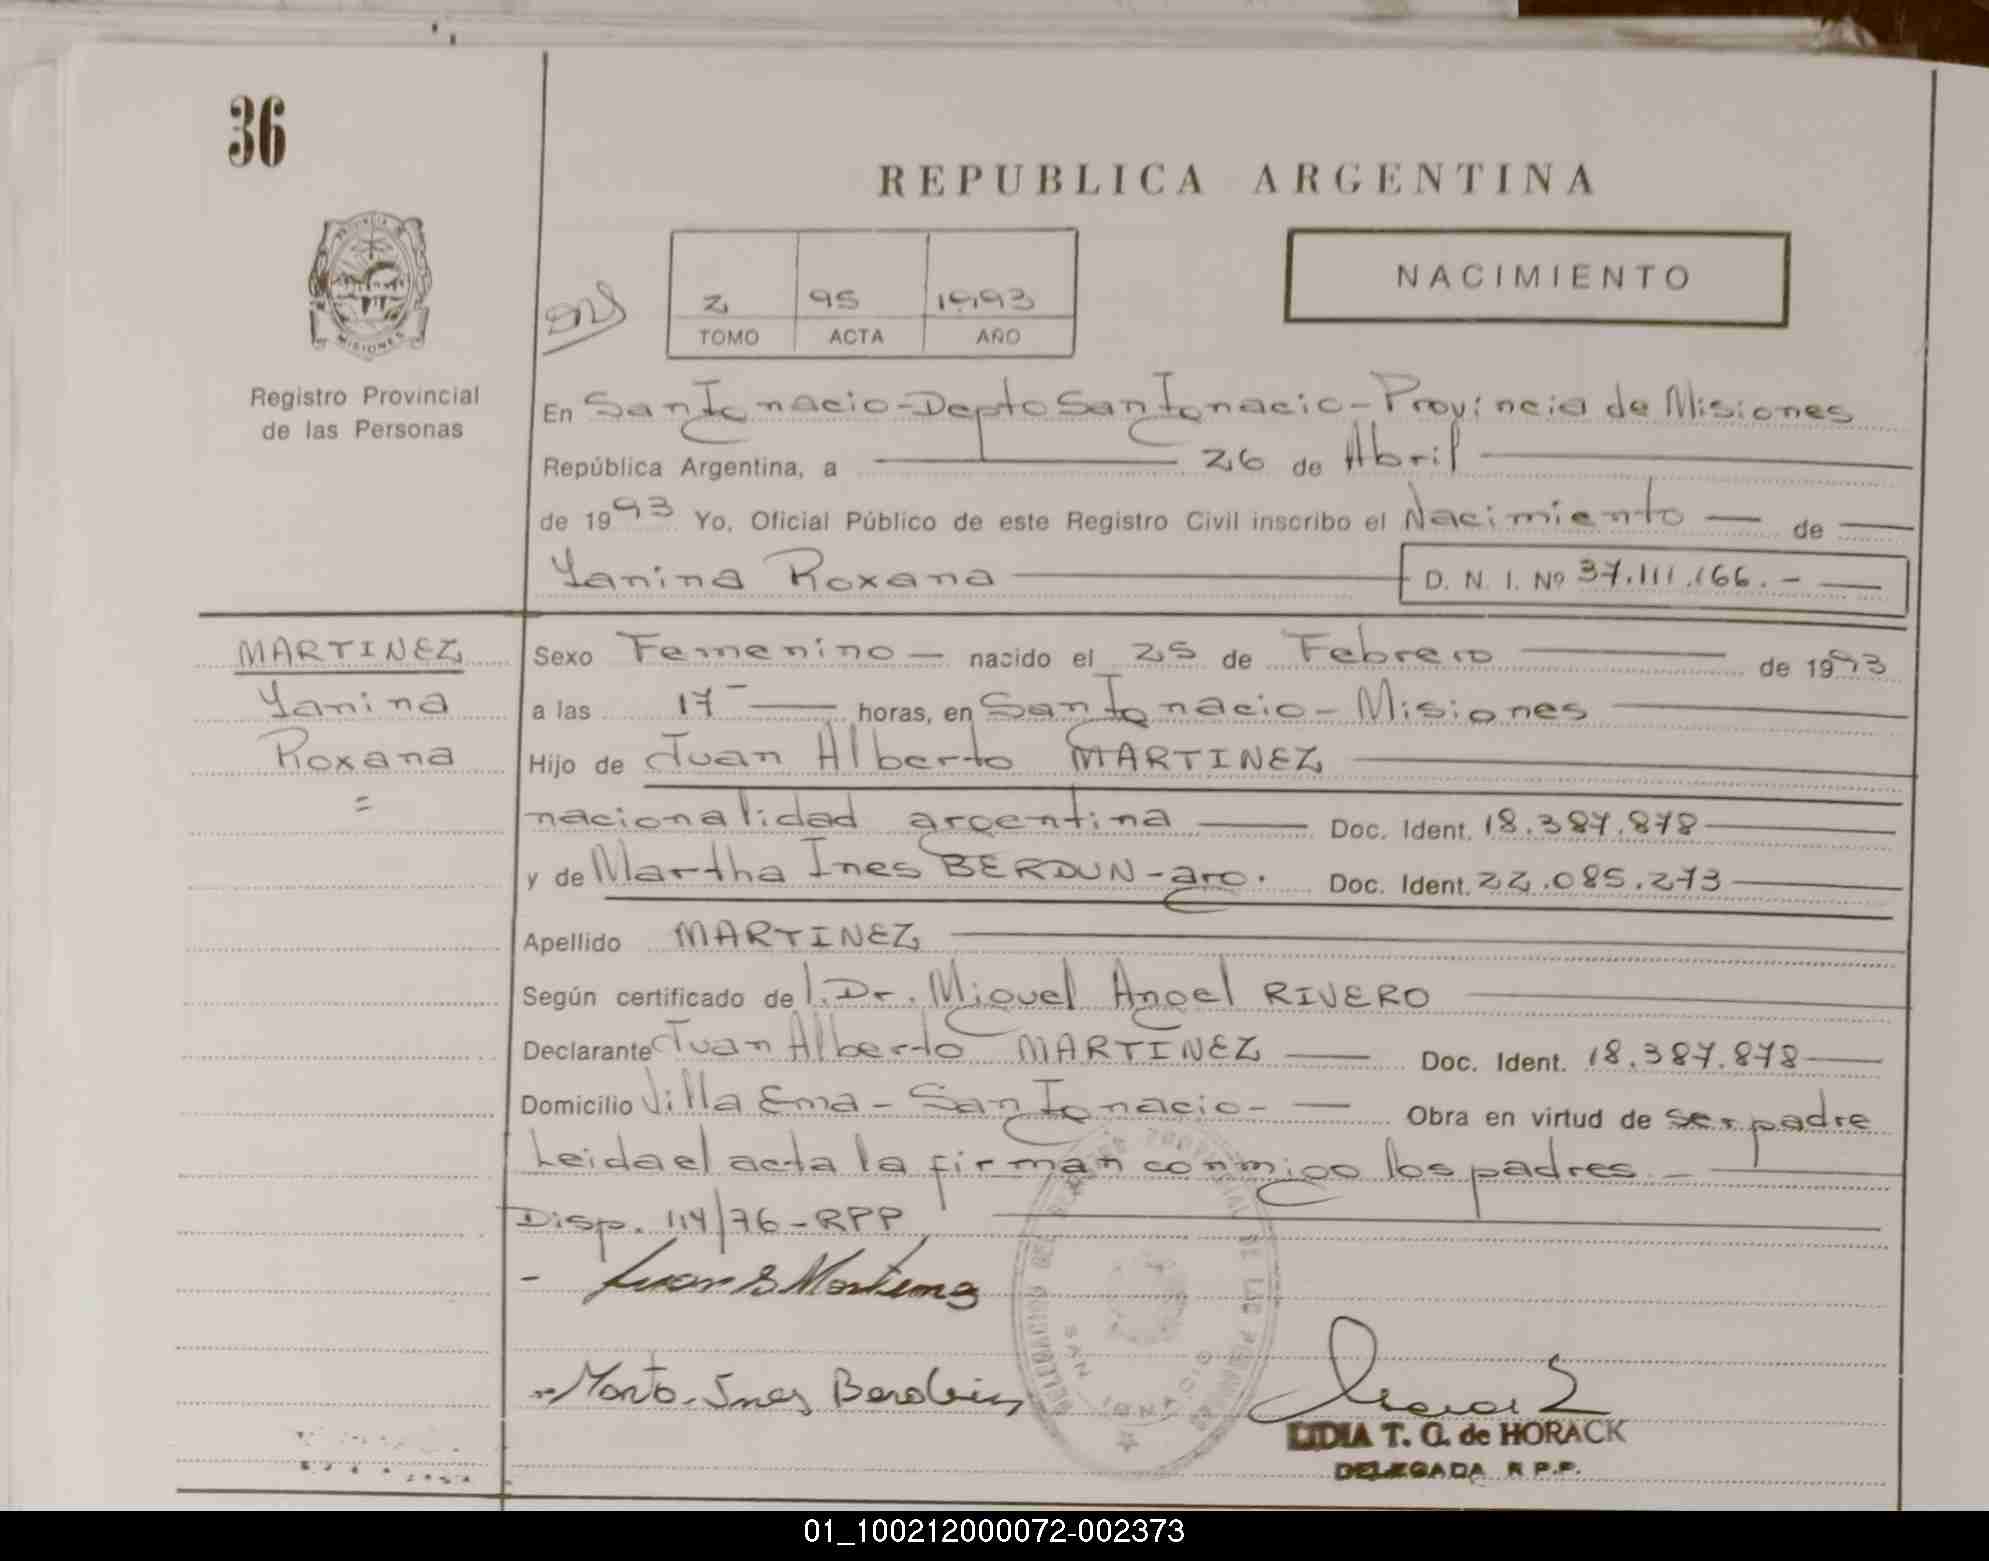 36
REPUBLICA ARGENTINA
NACIMIENTO
2 95 1993
TOMO ACTA AÑO
PROVINCIA
MISIONES
Registro Provincial
de las Personas
En San Ignacio-Depto San Ignacio-Provincia de Misiones
República Argentina, a 26 de Abril
de 1993 Yo, Oficial Público de este Registro Civil inscribo el Nacimiento — de
Yanina Roxana D. N. I. Nº 37.111.166.-
MARTINEZ
Yanina
Roxana
=
Sexo Femenino — nacido el 25 de Febrero de 1993
a las 17 horas, en San Ignacio - Misiones
Hijo de Juan Alberto MARTINEZ
nacionalidad argentina Doc. Ident. 18.387.878
y de Martha Ines BERDUN-arg. Doc. Ident. 22.085.273
Apellido MARTINEZ
Según certificado de l.Dr. Miguel Angel RIVERO
Declarante Juan Alberto MARTINEZ Doc. Ident. 18.387.878
Domicilio Villa Ema - San Ignacio- Obra en virtud de ser padre
Leida el acta la firman conmigo los padres -
Disp. 114/76-RPP
- Juan A Martinez
- Marta Ines Berdun
SAN IGNACIO
LIDIA T. O. de HORACK
DELEGADA R P.P.
01_100212000072-002373